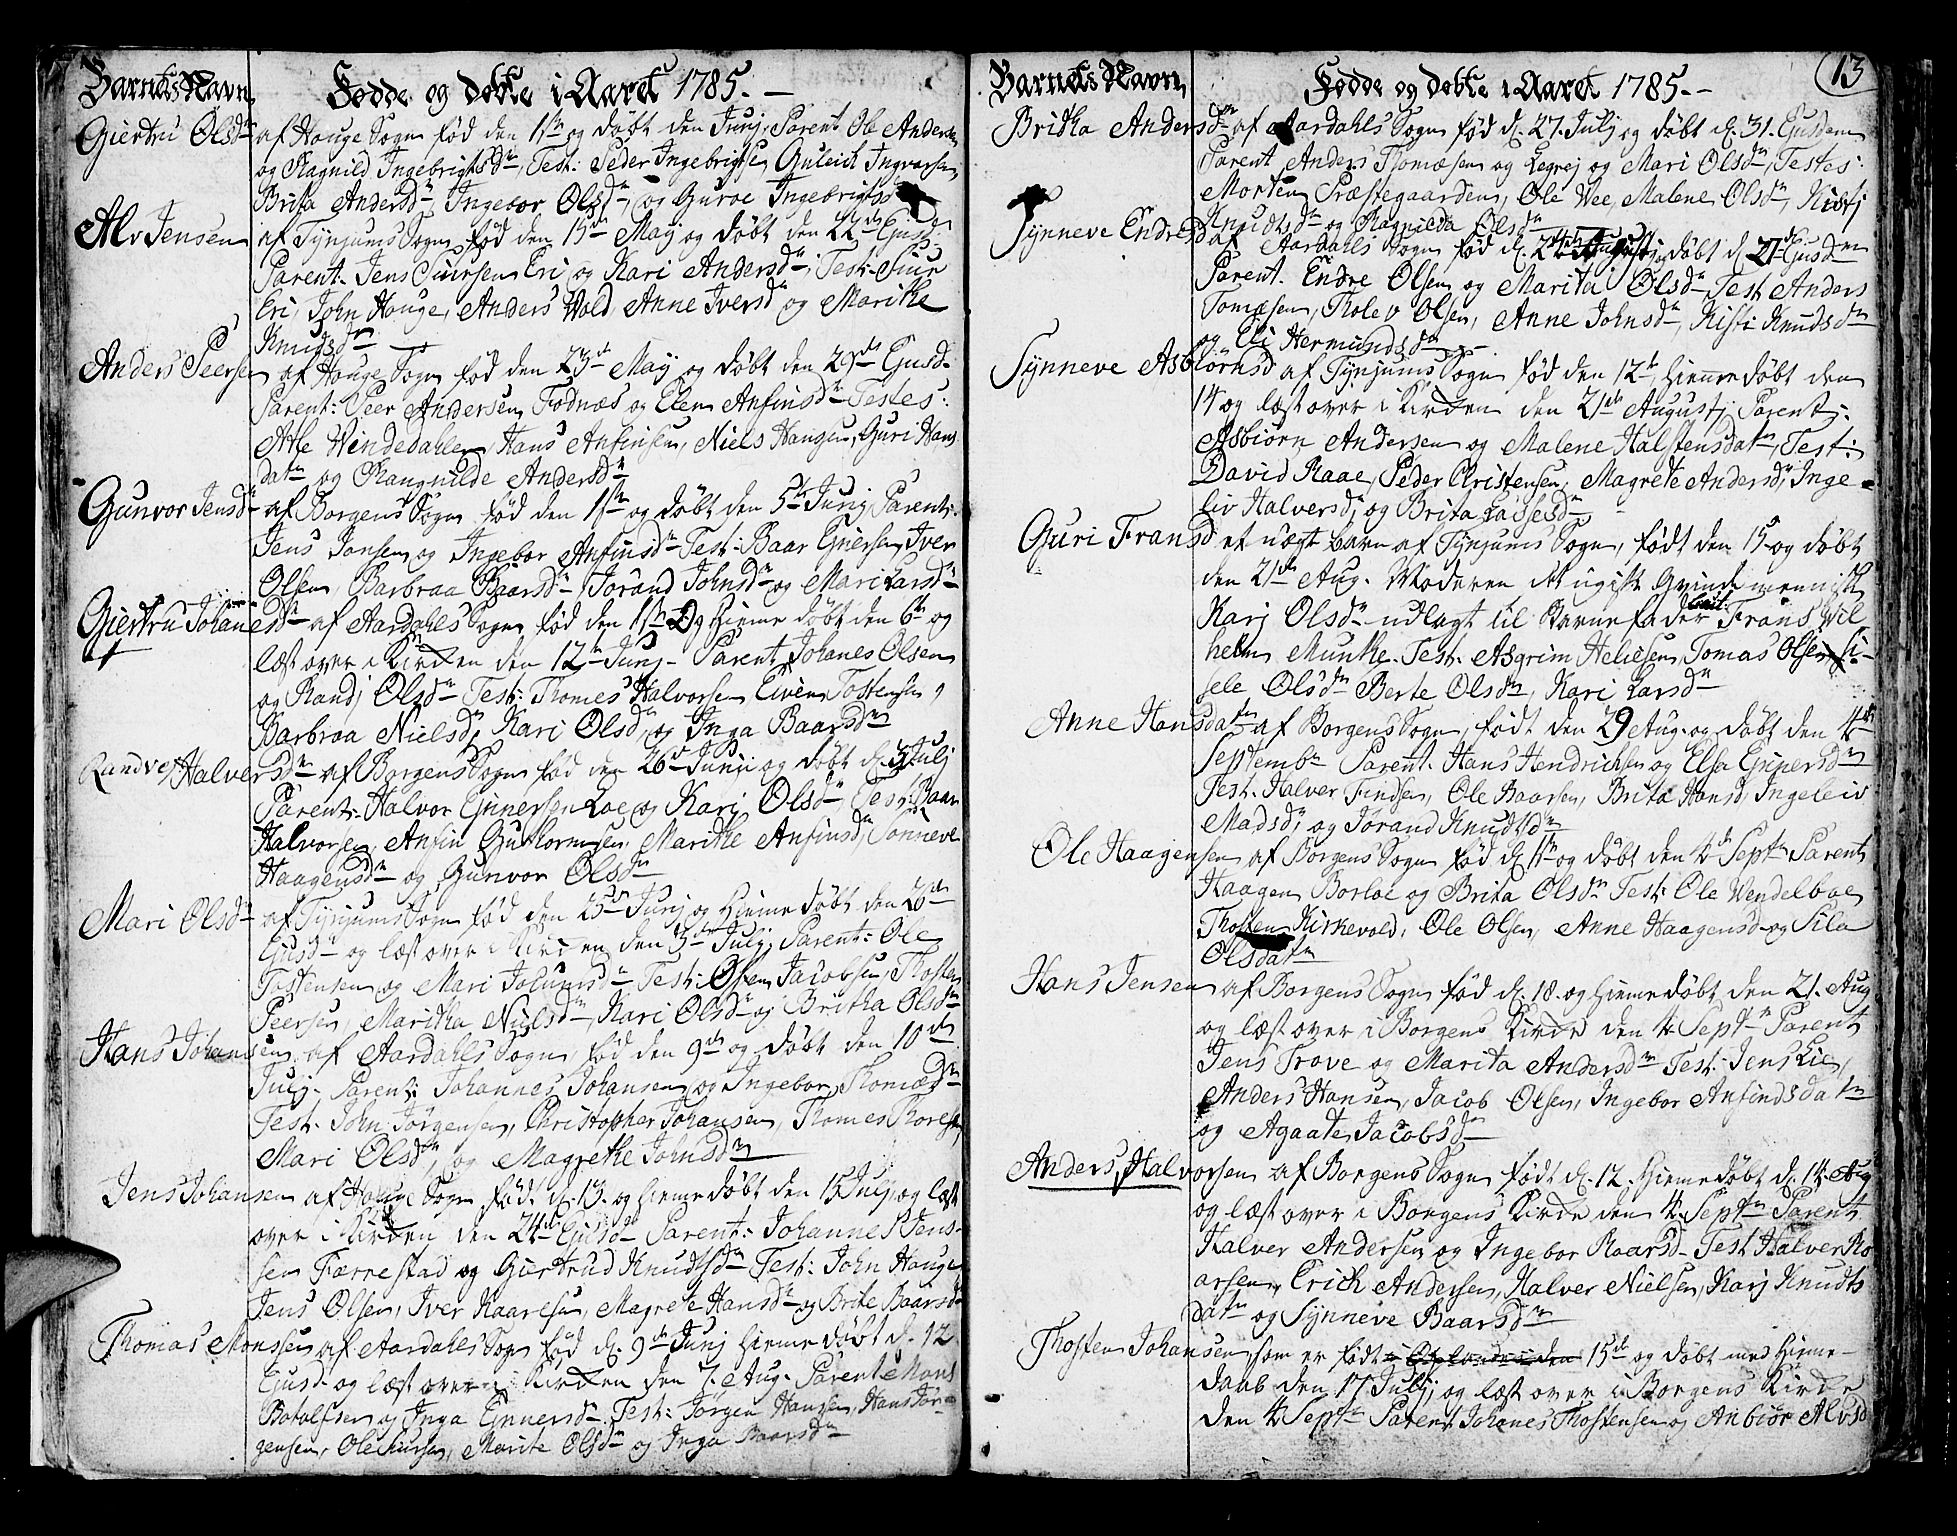 Barnets Navn
Fødde og døbte i Aaret 1785. –
Giertru Olsdn af Houge Sogn fød den 1ste og døbt den Junj, Parent Ole Andersen
og Ragnild Ingebrigtsdn, Test: Peder Ingebrigtsen, Guleich Ingvarsen
Brita Andersdn, Ingebor Olsdn, og Guroe Ingebrigtsd
Alv Jensen af Tynjums Sogn fød den 15de May og døbt den 22de Ejusd
Parent. Jens Siursen Eri og Kari Andersdn, Test: Siur
Eri, John Houge, Anders Wold, Anne Iversdn og Marithe
Knudsdn
Anders Peersen af Houge Sogn fød den 23de May og døbt den 29de Ejusd.
Parent: Peer Andersen Fodnæs og Elen Anfinsdn Testes:
Atle Windedahlen, Hans Anfinsen, Niels Hangen, Guri Hans
datn og Rangnilde Andersdn
Gunvor Jensdn af Borgens Sogn fød den 1ste og døbt den 5te Junj, Parent:
Jens Jansen og Ingebor Anfinsdn Test: Baar Ejnersen, Iver
Olsen, Barbraa Baarsdn, Jorand Johnsdn og Mari Larsdn
Giertru Johanesdn af Aardahls Sogn fød den 1ste og Hieme døbt den 6te og
læst over i Kirken den 12te Junj – Parent Johanes Olsen
og Randj Olsdn Test: Thomes Halvorsen, Eiven Tostensen,
Barbraa Nielsdn, Kari Olsd, og Inga Baarsdn
Randvej Halversdn af Borgens Sogn fød den 26de Junji og døbt d. 3 Julj
Parent: Halvor Ejnersen Loe og Karj Olsdn Test: Baar
Halvorsen, Anfin Guthormsen, Marithe Anfinsdn, Sønneve
Haagensdn og Gunvor Olsdn
Mari Olsdn af Tynjums Sogn fød den 25de Junj og Hieme døbt den 26de
Ejusd – og læst over i Kirken den 3de Julj, Parent: Ole
Tostensen og Mari Johansdn Test: Osten Jacobsen, Thosten
Peersen, Maritha Nielsdn, Kari Olsdn og Britha Olsdn
Hans Johansen af Aardahls Sogn fød den 9de og døbt den 10de
Julj. Parent: Johannes Johansen og Ingebor Thomæsdn
Test. John Jørgensen, Christopher Johansen, Thomes Thoresen,
Mari Olsdn, og Magrethe Johnsdn
Jens Johansen af Houge Sogn fød. d. 13. og hieme døbt den 15 Julj og læst
over i Kirken den 24de Ejusd Parent: Johannes Jens-
sen Færrestad og Giertrud Knudtsdn Test: John Houge
Jens Olsen, Iver Kaaresen, Magrete Hansdn og Brite Baarsdn
Thomas Monssen af Aardahls Sogn fød d. 9de Junj hieme døbt d. 12
Ejusd. og læst over i Kirken den 7. Aug. Parent Mons
Botolfsen og Inga Ejnersdn Test: Jørgen Hanssen, Hans Jør-
gensen, Ole Siursen, Marite Olsdn og Inga Baarsdn
Barnets Navn
Fødde og døbte i Aaret 1785. –
13
Britha Andersdn af Aardahls Sogn fød d. 27. Julj og døbt d. 31. Ejusdem
Parent Anders Thomæsen og Legrej og Mari Olsdn, Testes:
Morten Præstegaarden, Ole Wee, Malene Olsdn, Kistj
Knudtsdn og Ragnilda Olsdn
Synneve Endresd af Aardahls Sogn fød d. 24de Augusti døbt d. 27de Ejusdem
Parent. Endre Olsen og Marita Olsdn, Test Anders
Tomæsen, Tholev Olsen, Anne Johnsdn, Kisti Knudsdn
og Eli Hermundsdn
Synneve Asbiørnsd af Tynjums Sogn fød den 12te hieme døbt den
14 og læst over i Kirken den 21de Augustj Parent:
Asbiørn Andersen og Malene Halstensdatn, Test:
David Raae, Peder Christensen, Magrete Andersdn, Inge-
liv Halversd, og Brita Lassesdn
Guri Fransd et uægt barn af Tynjums Sogn, født den 15 og døbt
den 21de Aug. Moderen et ugift Qvindemenniske
Karj Olsdn udlagt til Barnefader Frans Wil
helm Munthe. Test. Asgrim Heliesen, Tomas Olsen, Si-
sele Olsdn Berte Olsdn, Kari Larsdn
Anne Hansdatn af Borgens Sogn, født den 29 Aug. og døbt den 4de
Septembr Parent. Hans Hendrichsen og Elsa Ejnersdn
Test. Halver Findsen, Ole Baarsen, Brita Hansd, Ingeleiv
Madsd, og Jorand Knudtsdn
Ole Haagensen af Borgens Sogn fød d. 1ste og døbt den 4de Septr Parent
Haagen Borloe og Brita Olsdn Test: Ole Wendelboe
Thosten Kirkevold, Ole Olsen, Anne Haagensd og Sila
Olsdatn
Hans Jensen af Borgens Sogn fød d. 18. og hieme døbt den 21. Aug
og læst over i Borgens Kirke den 4 Septr Parent
Jens Trove og Marita Andersdn Test: Jens Lie,
Anders Hansen, Jacob Olsen, Ingebor Anfindsdatn
og Agaate Jacobsdn
Anders Halvorsen af Borgens Sogn født d. 12. hieme døbt d. 14. Aug
og læst over i Borgens Kirke den 4. Septr Parent
Halver Andersen og Ingebor Roarsd Test Halver Ro
arsen, Erich Andersen, Halver Nielsen, Karj Knudts
datn og Synneve Baarsdn
Thosten Johansen, som er født 15de og døbt med Hieme-
daab den 17 Julj, og læst over i Borgens Kirke
den 4 Septr Parent Johanes Thostensen og Anbiør Alvsd